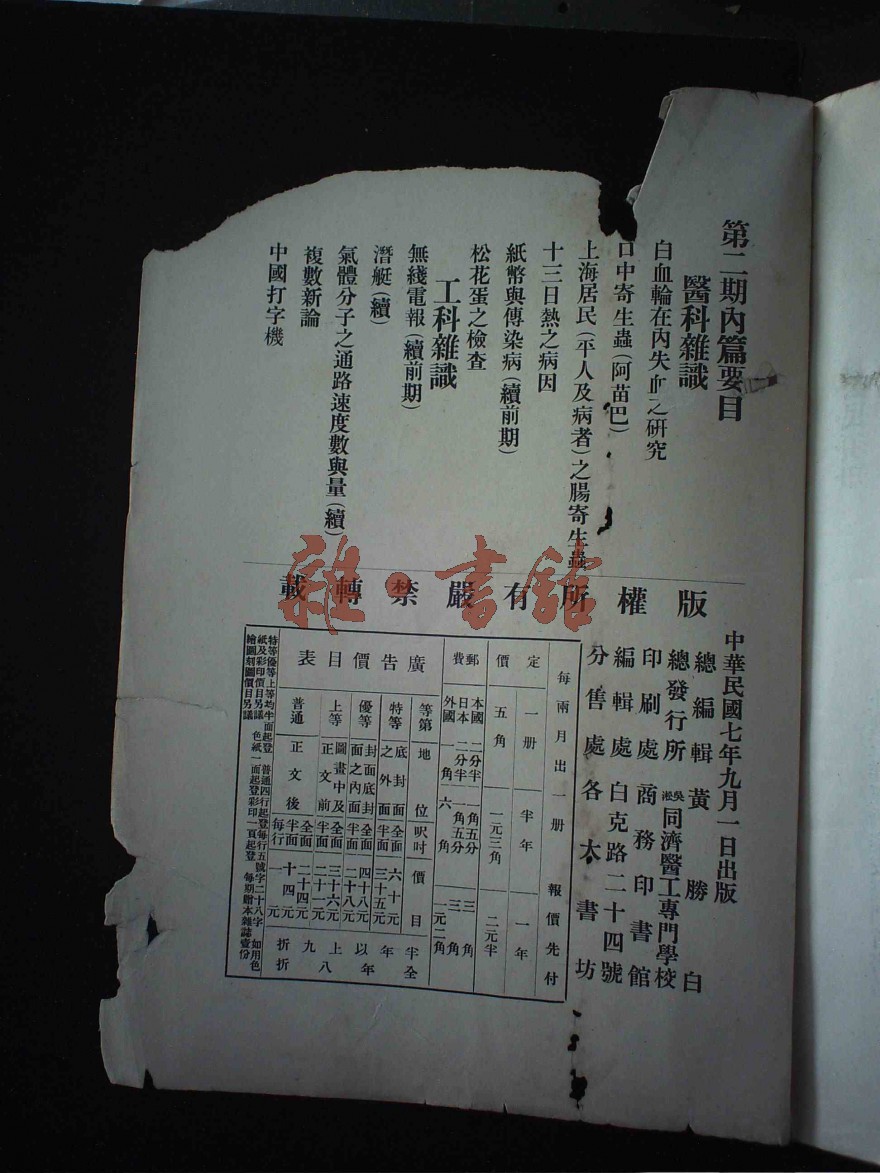 第二期內篇要目
醫科雜識
白血輪在內失血之研究
口中寄生蟲(阿苗巴)
上海居民(平人及病者)之腸寄生蟲
十三日熱之病因
紙幣與傳染病(續前期)
松花蛋之檢查
工科雜識
無綫電報(續前期)
潛艇(續)
氣體分子之通路速度數與量(續)
複數新論
中國打字機
版權所有嚴禁轉載
中華民國七年九月一日出版
總編輯 黃勝白
總發行所 吳淞同濟醫工專門學校
印刷處 商務印書館
編輯處 白克路二十四號
分售處 各太書坊
每兩月出一册 報價先付
定價 一册 半年 一年
五角 一元三角 二元半
郵費 本國 二分半 一角五分 三角
日本 二分半 一角五分 三角
外國 一角 六角 一元二角
廣告價目表
等第 地位 呎吋 價目
特等 底封面之外面 全面 六十元
半面 三十五元
優等 封面底封面之內面 全面 四十八元
半面 二十八元
上等 圖畫中及正文前 全面 三十六元
半面 二十一元
普通 正文後 全面 二十四元
半面 十四元
每行 一元
半年以上九折
全年以上八折
特等優等上等均半面起登 普通四行起登每行五號字二十八字 如用色
紙及彩印價目另議 色紙一面起登彩印一頁起登 每期贈本雜誌壹份
繪圖刻圖價目另議
雜·書館